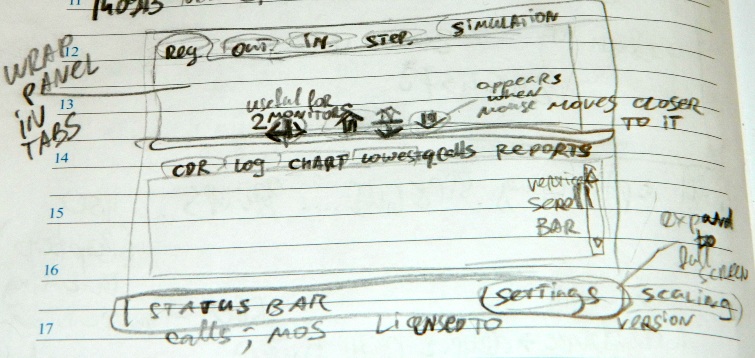 12
Reg OUT. IN. STEP. SIMULATION
WRAP
PANEL
IN
TABS
13
useful for
2 MONITORS
appears
when
mouse MOVES CLOSER
TO IT
14
CDR LOG CHART lowest calls REPORTS
15
SCROLL
BAR
16
expand
to
full
SCREEN
STATUS BAR settings scaling
17
calls; MOS LICENSED TO VERSION